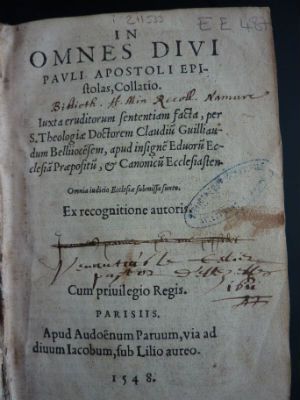 211533
E E 487
IN
OMNES DIVI
PAVLI APOSTOLI EPI-
stolas, Collatio.
Biblioth. ff. Min Recoll. Namurc
Iuxta eruditorum sententiam facta, per
S. Theologiæ Doctorem Claudiũ Guilliau-
dum Belliiocẽsem, apud insignẽ Eduorũ Ec-
clesiã Præpositũ, & Canonicũ Ecclesiasten.
Omnia iudicio Ecclesiæ submissa sunto.
Ex recognitione autoris.
pastor
Cum priuilegio Regis.
PARISIIS.
Apud Audoënum Paruum, via ad
diuum Iacobum, sub Lilio aureo.
1548.